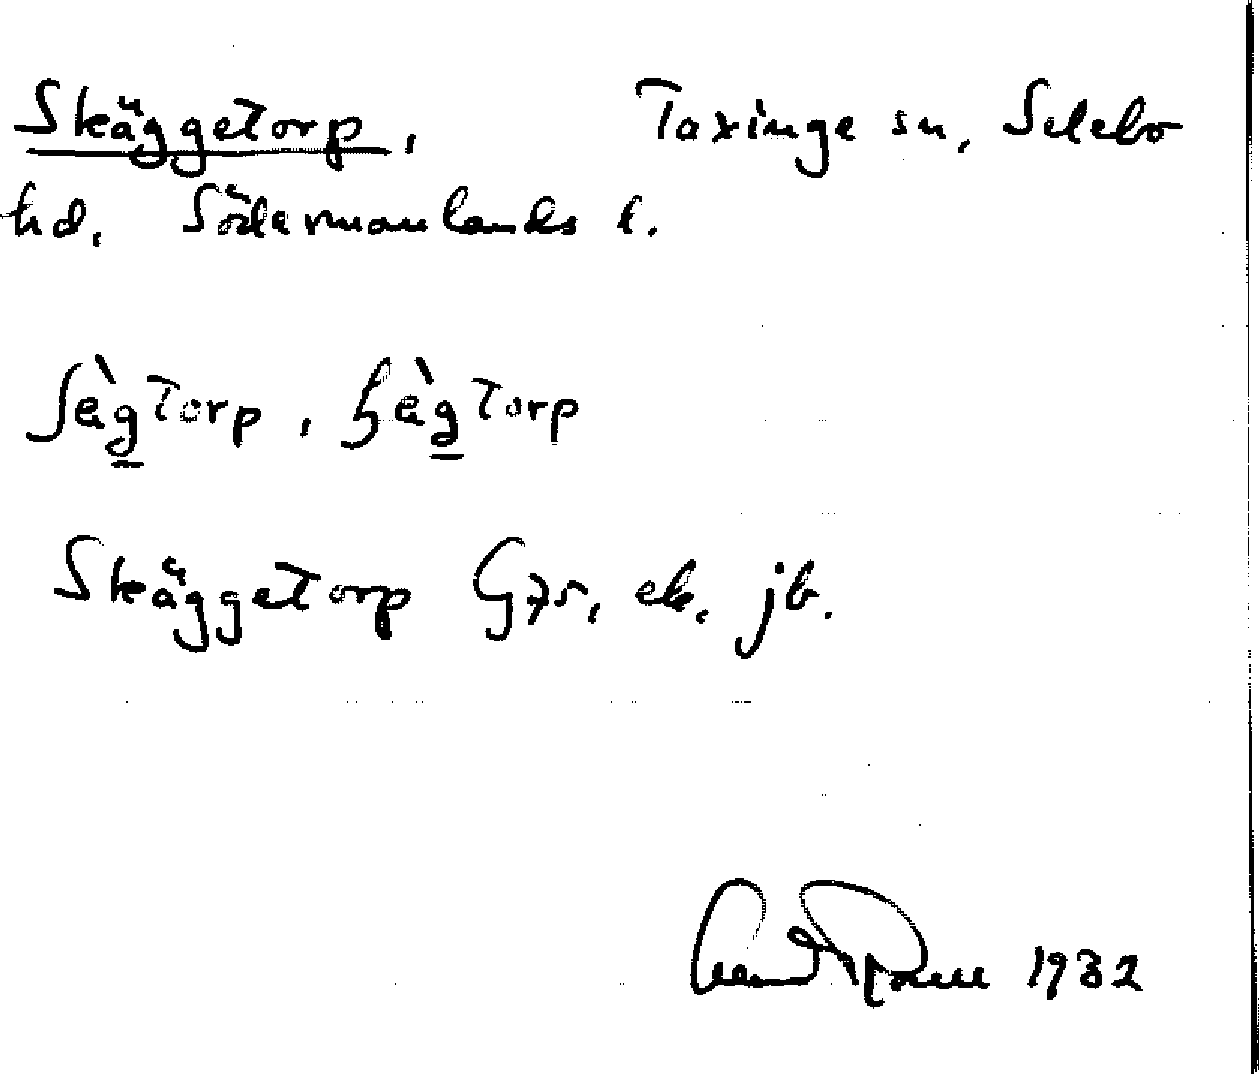 Skäggetorp, Taxinge sn, Selebo
hd. Södermanlands l.
ʃèg̲torp, ꜧèg̲torp
Skäggetorp G75, ek, jb.
1932